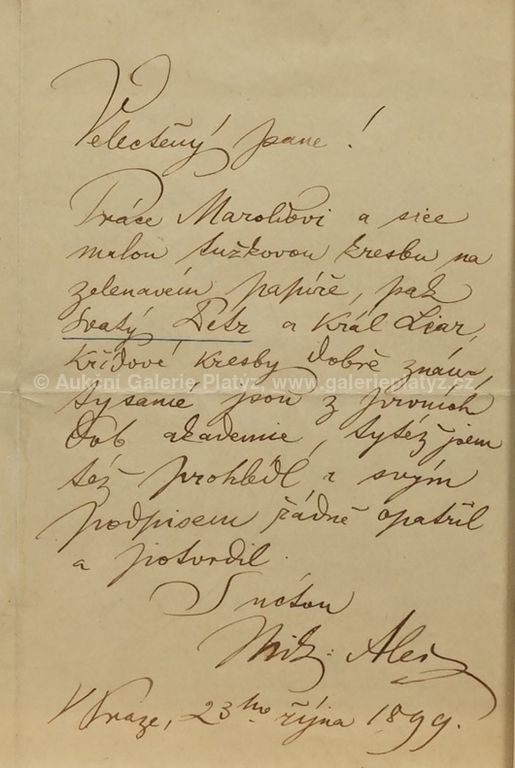 Velectěný pane!
Práce Maroldovi a sice
malou tužkovou kresbu na
zelenavém papíře, pak
svatý Petr a Král Lear,
křídové kresby dobře znám
© Aukční Galerie Platýz www.galerieplatyz.cz
tysamé jsou z prvních
dob akademie, tytéž jsem
též prohlédl i svým
podpisem řádně opatřil
a potvrdil.
S úctou
Mik. Aleš
V Praze, 23ho října 1899.